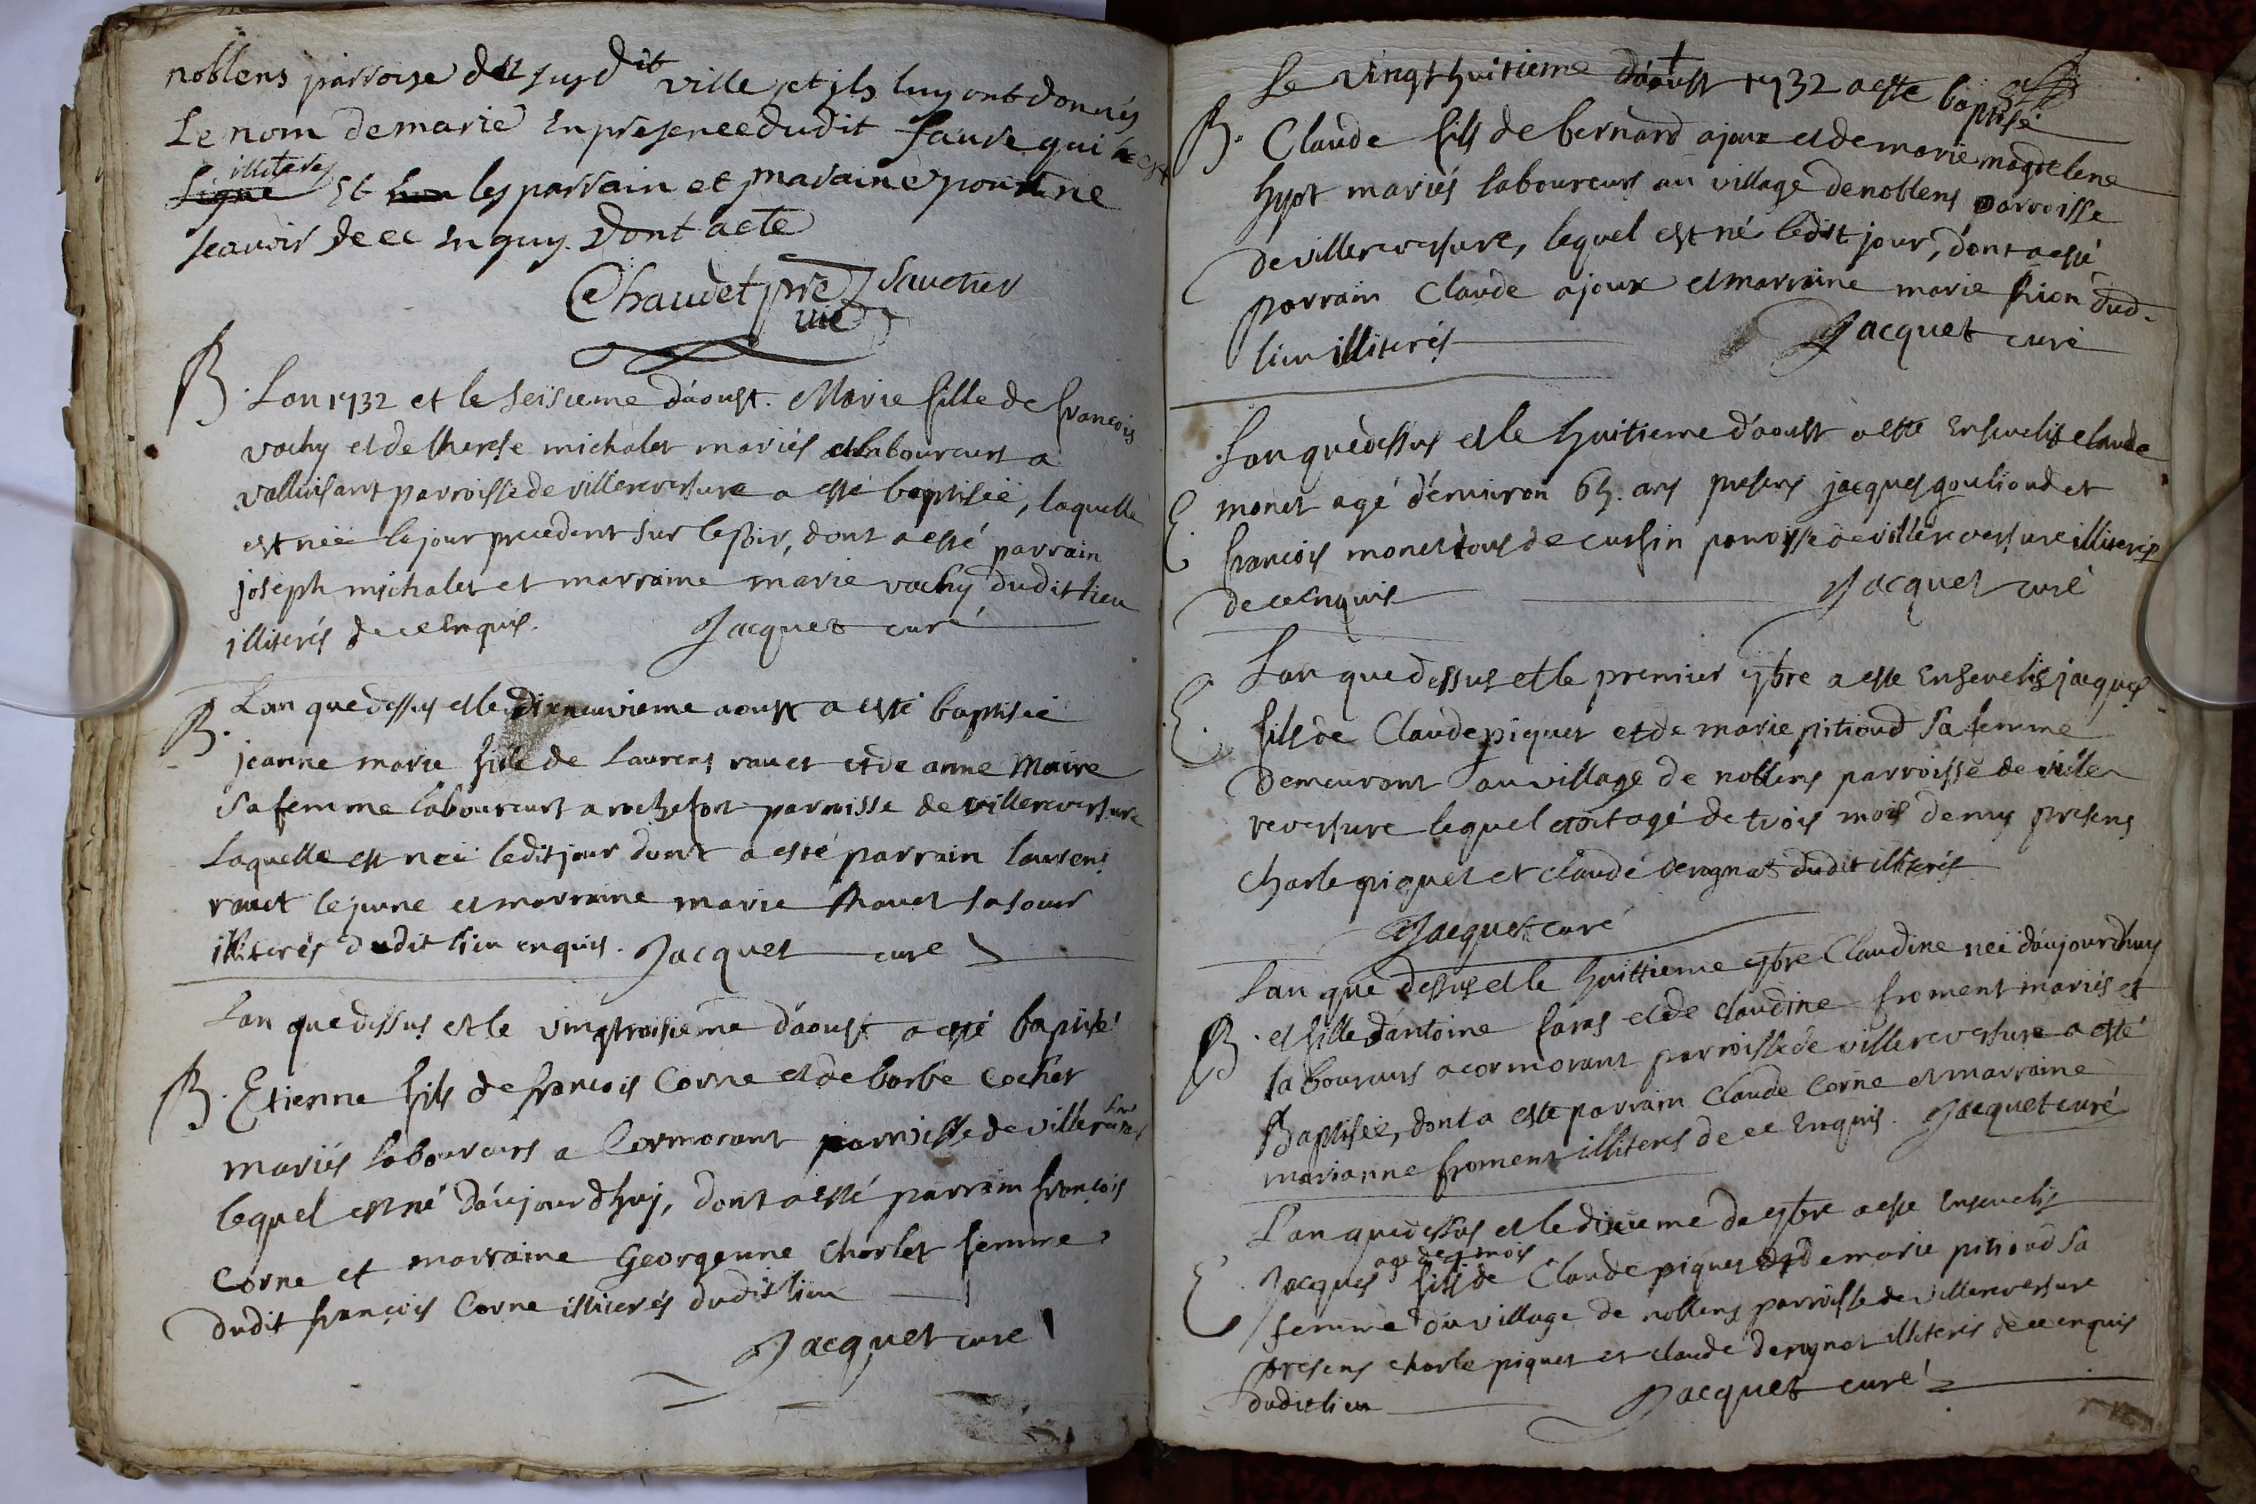 noblens parroise du susdit ville et ils luy ont donnés
Le nom de marie En presence dudit faure qui
illiterés
Signe Et les parrain et maraine pour ne
scavoir de ce enquy Dont acte
Chaudet pre
vic
B. Lan 1732 et le seisieme d'aoust. Marie fille de francois
vachy et de therese michalet mariés et laboureurs a
valluisant parroisse de villereversure a esté baptisée, laquelle
est née le jour precedent sur le soir, dont a esté parrain
joseph michalet et marraine marie vachy dudit lieu
illiterés de ce Enquis. Jacquet curé
B. Lan que dessus et le dixneuvieme aoust a esté baptisée
jeanne marie fille de Laurens ravet et de anne Maire
sa femme laboureurs a rochefort parroisse de villereversure
Laquelle est née ledit jour dont a esté parrain laurens
ravet le jeune et marraine marie Ravet sa soeur
illiterés dudit lieu enquis. Jacquet curé
Lan que dessus et le vingtroisieme d'aoust a esté baptisé
B. Etienne fils de francois Corne et de barbe cochet
mariés laboureurs a Cormorant parroisse de villereversure
lequel est né d'aujourdhuy, dont a esté parrain francois
Corne et marraine Georgeune Charlet femme
dudit francois Corne illiterés dudit lieu
Jacquet curé
Le vingt huitieme d'aoust 1732 a esté baptisé
B. Claude fils de bernard ajoux et de marie magdelene
hyot mariés laboureurs au village de noblens parroisse
de villereversure, lequel est né ledit jour, dont a esté
parrain Claude ajoux et marraine marie dud.
lieu illiterés Jacquet curé
Lan que dessus et le huitieme d'aoust a esté Ensevelis claude
E. monet agé d'environ 65. ans presens jacques gouliond et
francois monet tous de cussin parroisse de villereversure illiterés
de ce enquis Jacquet curé
Lan que dessus et le premier 7bre a esté Ensevelis jacques
E. fils de Claude piquet et de marie pitioud sa femme
demeurant au village de noblens parroisse de ville
reversure lequel etoit agé de trois mois demy presens
charle piquet et claude derognat dudit illiterés
Jacquet curé
Lan que dessus et le huittieme 7bre Claudine née d'aujourdhuy
B. et fille d'antoine faras et de claudine froment mariés et
laboureurs a cormorant parroisse de villereversure a esté
Baptisée, dont a esté parrain Claude Corne et marraine
marianne froment illiterés de ce Enquis. Jacquet curé
Lan que dessus et le dixieme de 7bre a esté Ensevelis
agé de mois
E. Jacques fils de Claude piquet et de marie pitioud sa
femme du village de noblens parroisse de villereversure
presens charle piquet et claude derognat illiterés de ce enquis
dudit lieu Jacquet curé